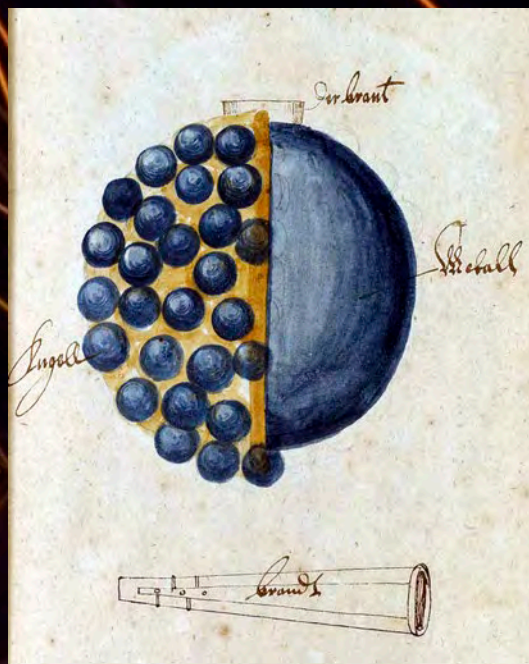 der brant
Metall
Kugell
brandt